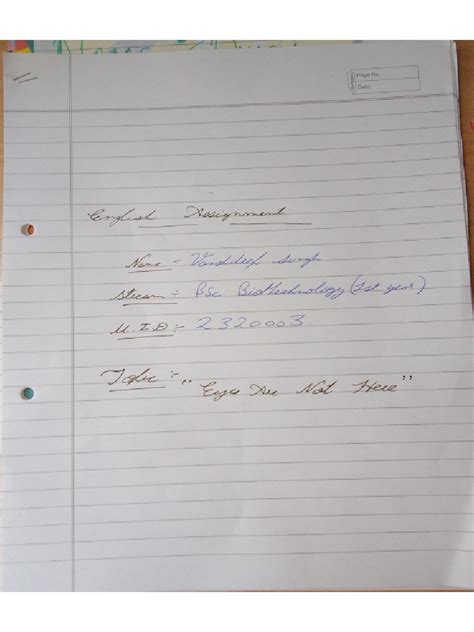 Page No.
Date:
English Assignment
Name - Vanshdeep Singh
Stream :- BSc Biotechnology (1st year)
U.I.D :- 2320003
Topic :- "Eyes Are Not Here"